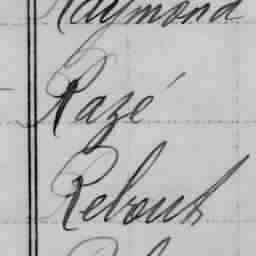 Raymond
Razé
Rebout